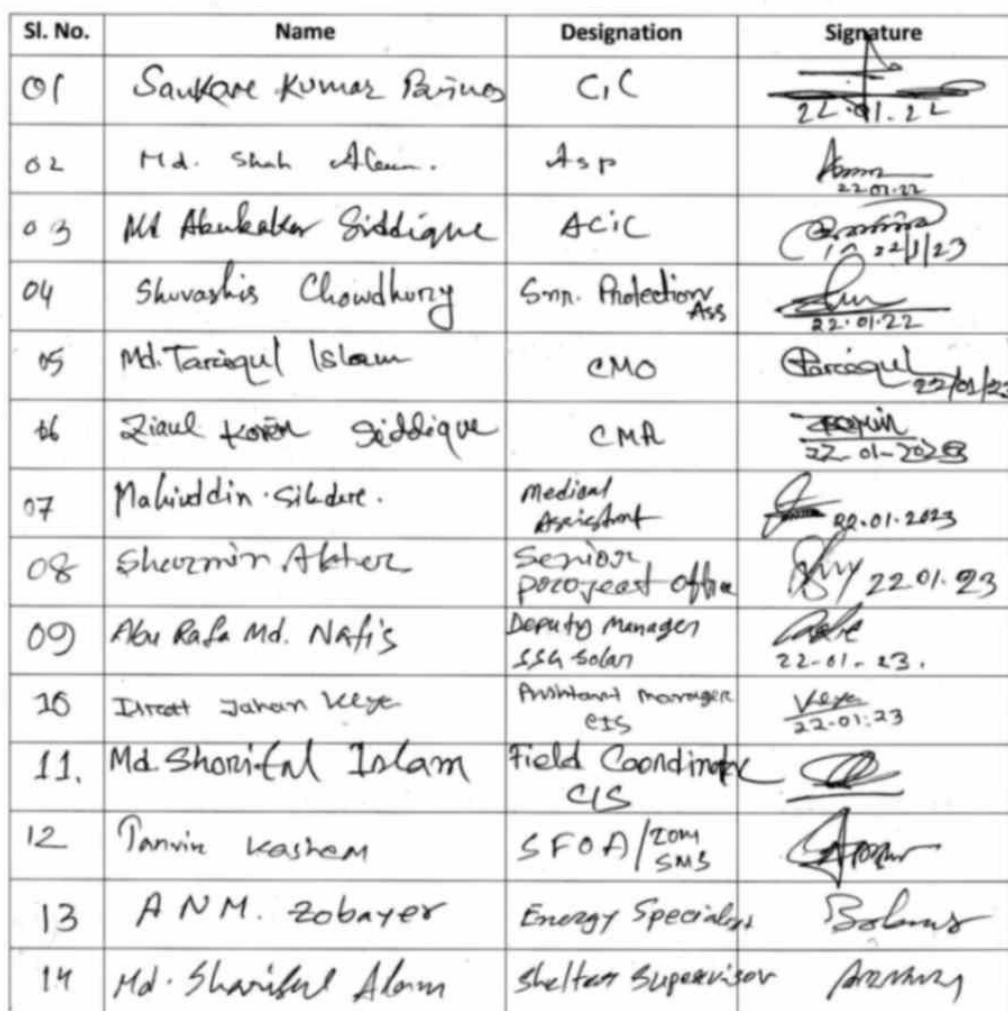 Sl. No. Name Designation Signature
01 Sankare Kumar CiC
22.01.22
02 Md. Shah Alam. Asp
22.01.22
03 Md Abubakar Siddique ACiC
22/1/23
04 Shuvashis Chowdhury Snr. Protection
Ass
22.01.22
05 Md. Tareiqul Islam CMO Tareiqul
22/01/23
06 Ziaul Siddique CMA
22-01-2023
07 Mahiuddin Sikdere. Medical
Assistant
22.01.2023
08 Sharmin Akhter Senior
porojeact office
22.01.23
09 Abu Rafa Md. Nafis Deputy Manager
SSG Solar
22-01-23.
10 Israt Jahan Keya Assistant manager
CIS
Keya
22-01.23
11. Md. Shoriful Islam Field Coordinator
CIS
12 Tanvir Kashem SFOA/ZOM
SMS
13 A N M. Zobayer Energy Specialist
14 Md. Shariful Alam Shelter Supervisor